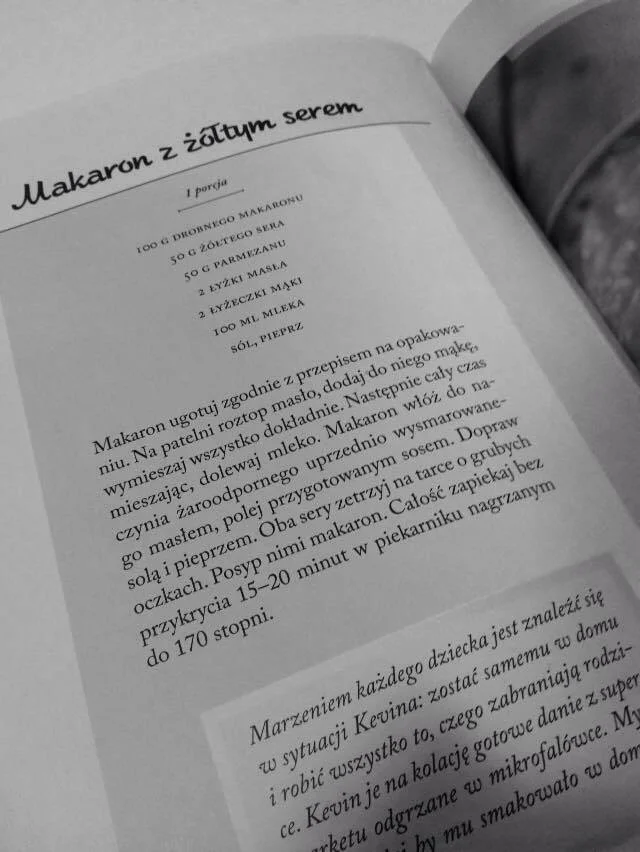 Makaron z żółtym serem
1 porcja
100 G DROBNEGO MAKARONU
50 G ŻÓŁTEGO SERA
50 G PARMEZANU
2 ŁYŻKI MASŁA
2 ŁYŻECZKI MĄKI
100 ML MLEKA
SÓL, PIEPRZ
Makaron ugotuj zgodnie z przepisem na opakowa-
niu. Na patelni roztop masło, dodaj do niego mąkę,
wymieszaj wszystko dokładnie. Następnie cały czas
mieszając, dolewaj mleko. Makaron włóż do na-
czynia żaroodpornego uprzednio wysmarowane-
go masłem, polej przygotowanym sosem. Dopraw
solą i pieprzem. Oba sery zetrzyj na tarce o grubych
oczkach. Posyp nimi makaron. Całość zapiekaj bez
przykrycia 15–20 minut w piekarniku nagrzanym
do 170 stopni.
Marzeniem każdego dziecka jest znaleźć się
w sytuacji Kevina: zostać samemu w domu
i robić wszystko to, czego zabraniają rodzi-
ce. Kevin je na kolację gotowe danie z super
arketu odgrzane w mikrofalówce. My
by mu smakowało w dom